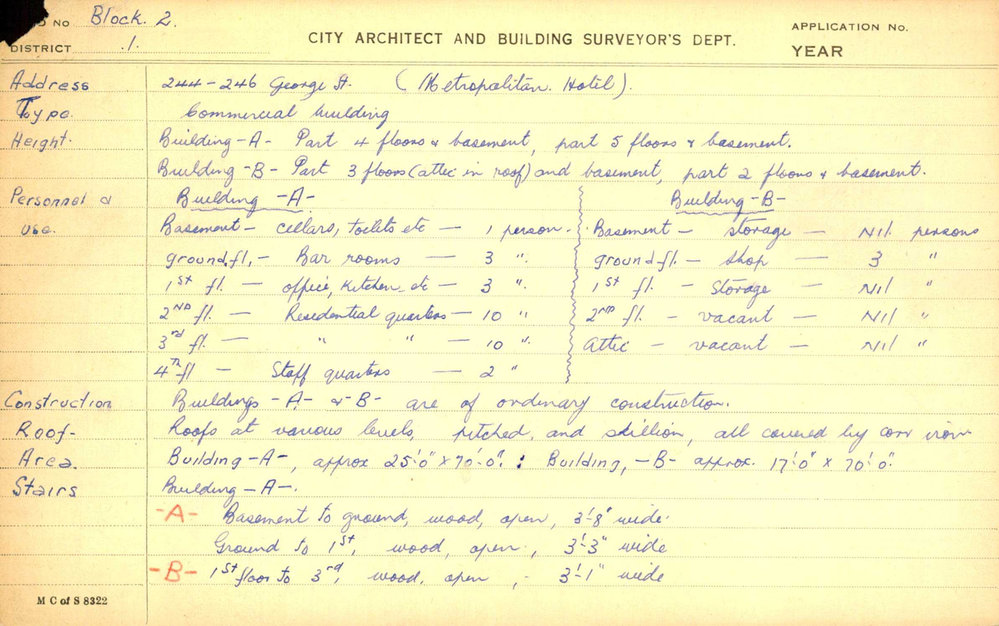 No Block. 2.
DISTRICT .1.
CITY ARCHITECT AND BUILDING SURVEYOR'S DEPT.
APPLICATION No.
YEAR
Address 244-246 George St. (Metropolitan Hotel).
Type. Commercial building
Height. Building -A- Part 4 floors & basement, part 5 floors & basement.
Building -B- Part 3 floors (attic in roof) and basement, part 2 floors & basement.
Personnel & Building -A- Building -B-
Use. Basement - cellars, toilets etc - 1 person. Basement - storage - Nil persons
ground fl. - Bar rooms - 3 " ground fl. - shop - 3 "
1st fl. - office, kitchen etc - 3 " 1st fl. - storage - Nil "
2ND fl. - Residential quarters - 10 " 2ND fl. - vacant - Nil "
3rd fl. - " " - 10 " Attic - vacant - Nil "
4th fl - Staff quarters - 2 "
Construction Buildings -A- & -B- are of ordinary construction.
Roof- Roofs at various levels, pitched, and skillion, all covered by corr iron
Area. Building -A-, approx 25'-0" x 70'-0". : Building, -B- approx. 17'-0" x 70'-0".
Stairs Building -A-.
-A- Basement to ground, wood, open, 3'-8" wide.
Ground to 1st, wood, open, 3'-3" wide
-B- 1st floor to 3rd, wood, open, - 3'-1" wide
M C of S 8322